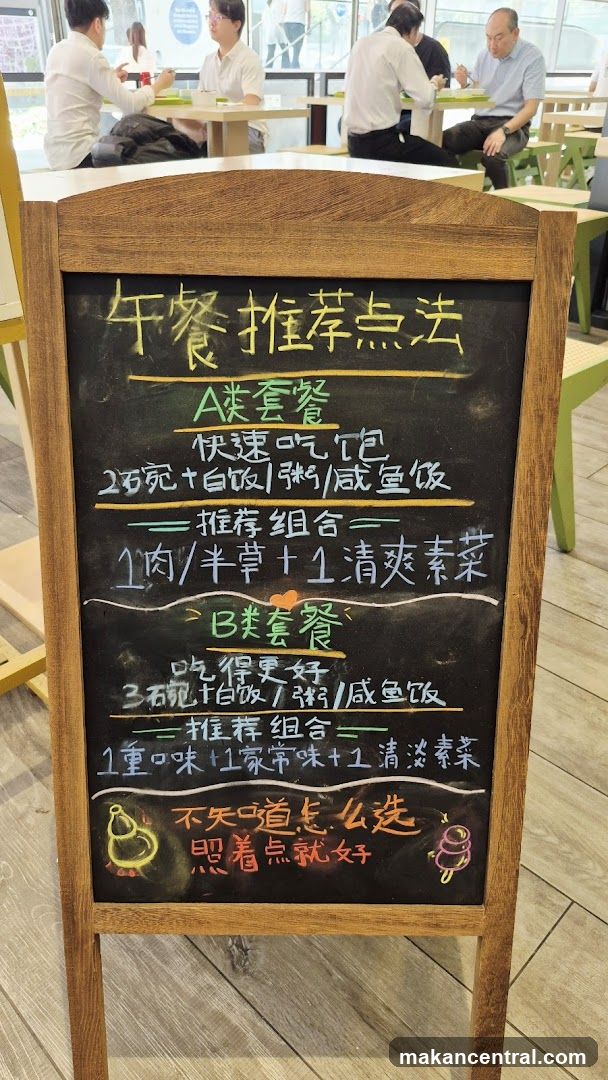 午餐推荐点法
A类套餐
快速吃饱
2碗+白饭/粥/咸鱼饭
推荐组合
1肉/半荤+1清爽素菜
B类套餐
吃得更好
3碗+白饭/粥/咸鱼饭
推荐组合
1重口味+1家常味+1清淡素菜
不知道怎么选
照着点就好
makancentral.com